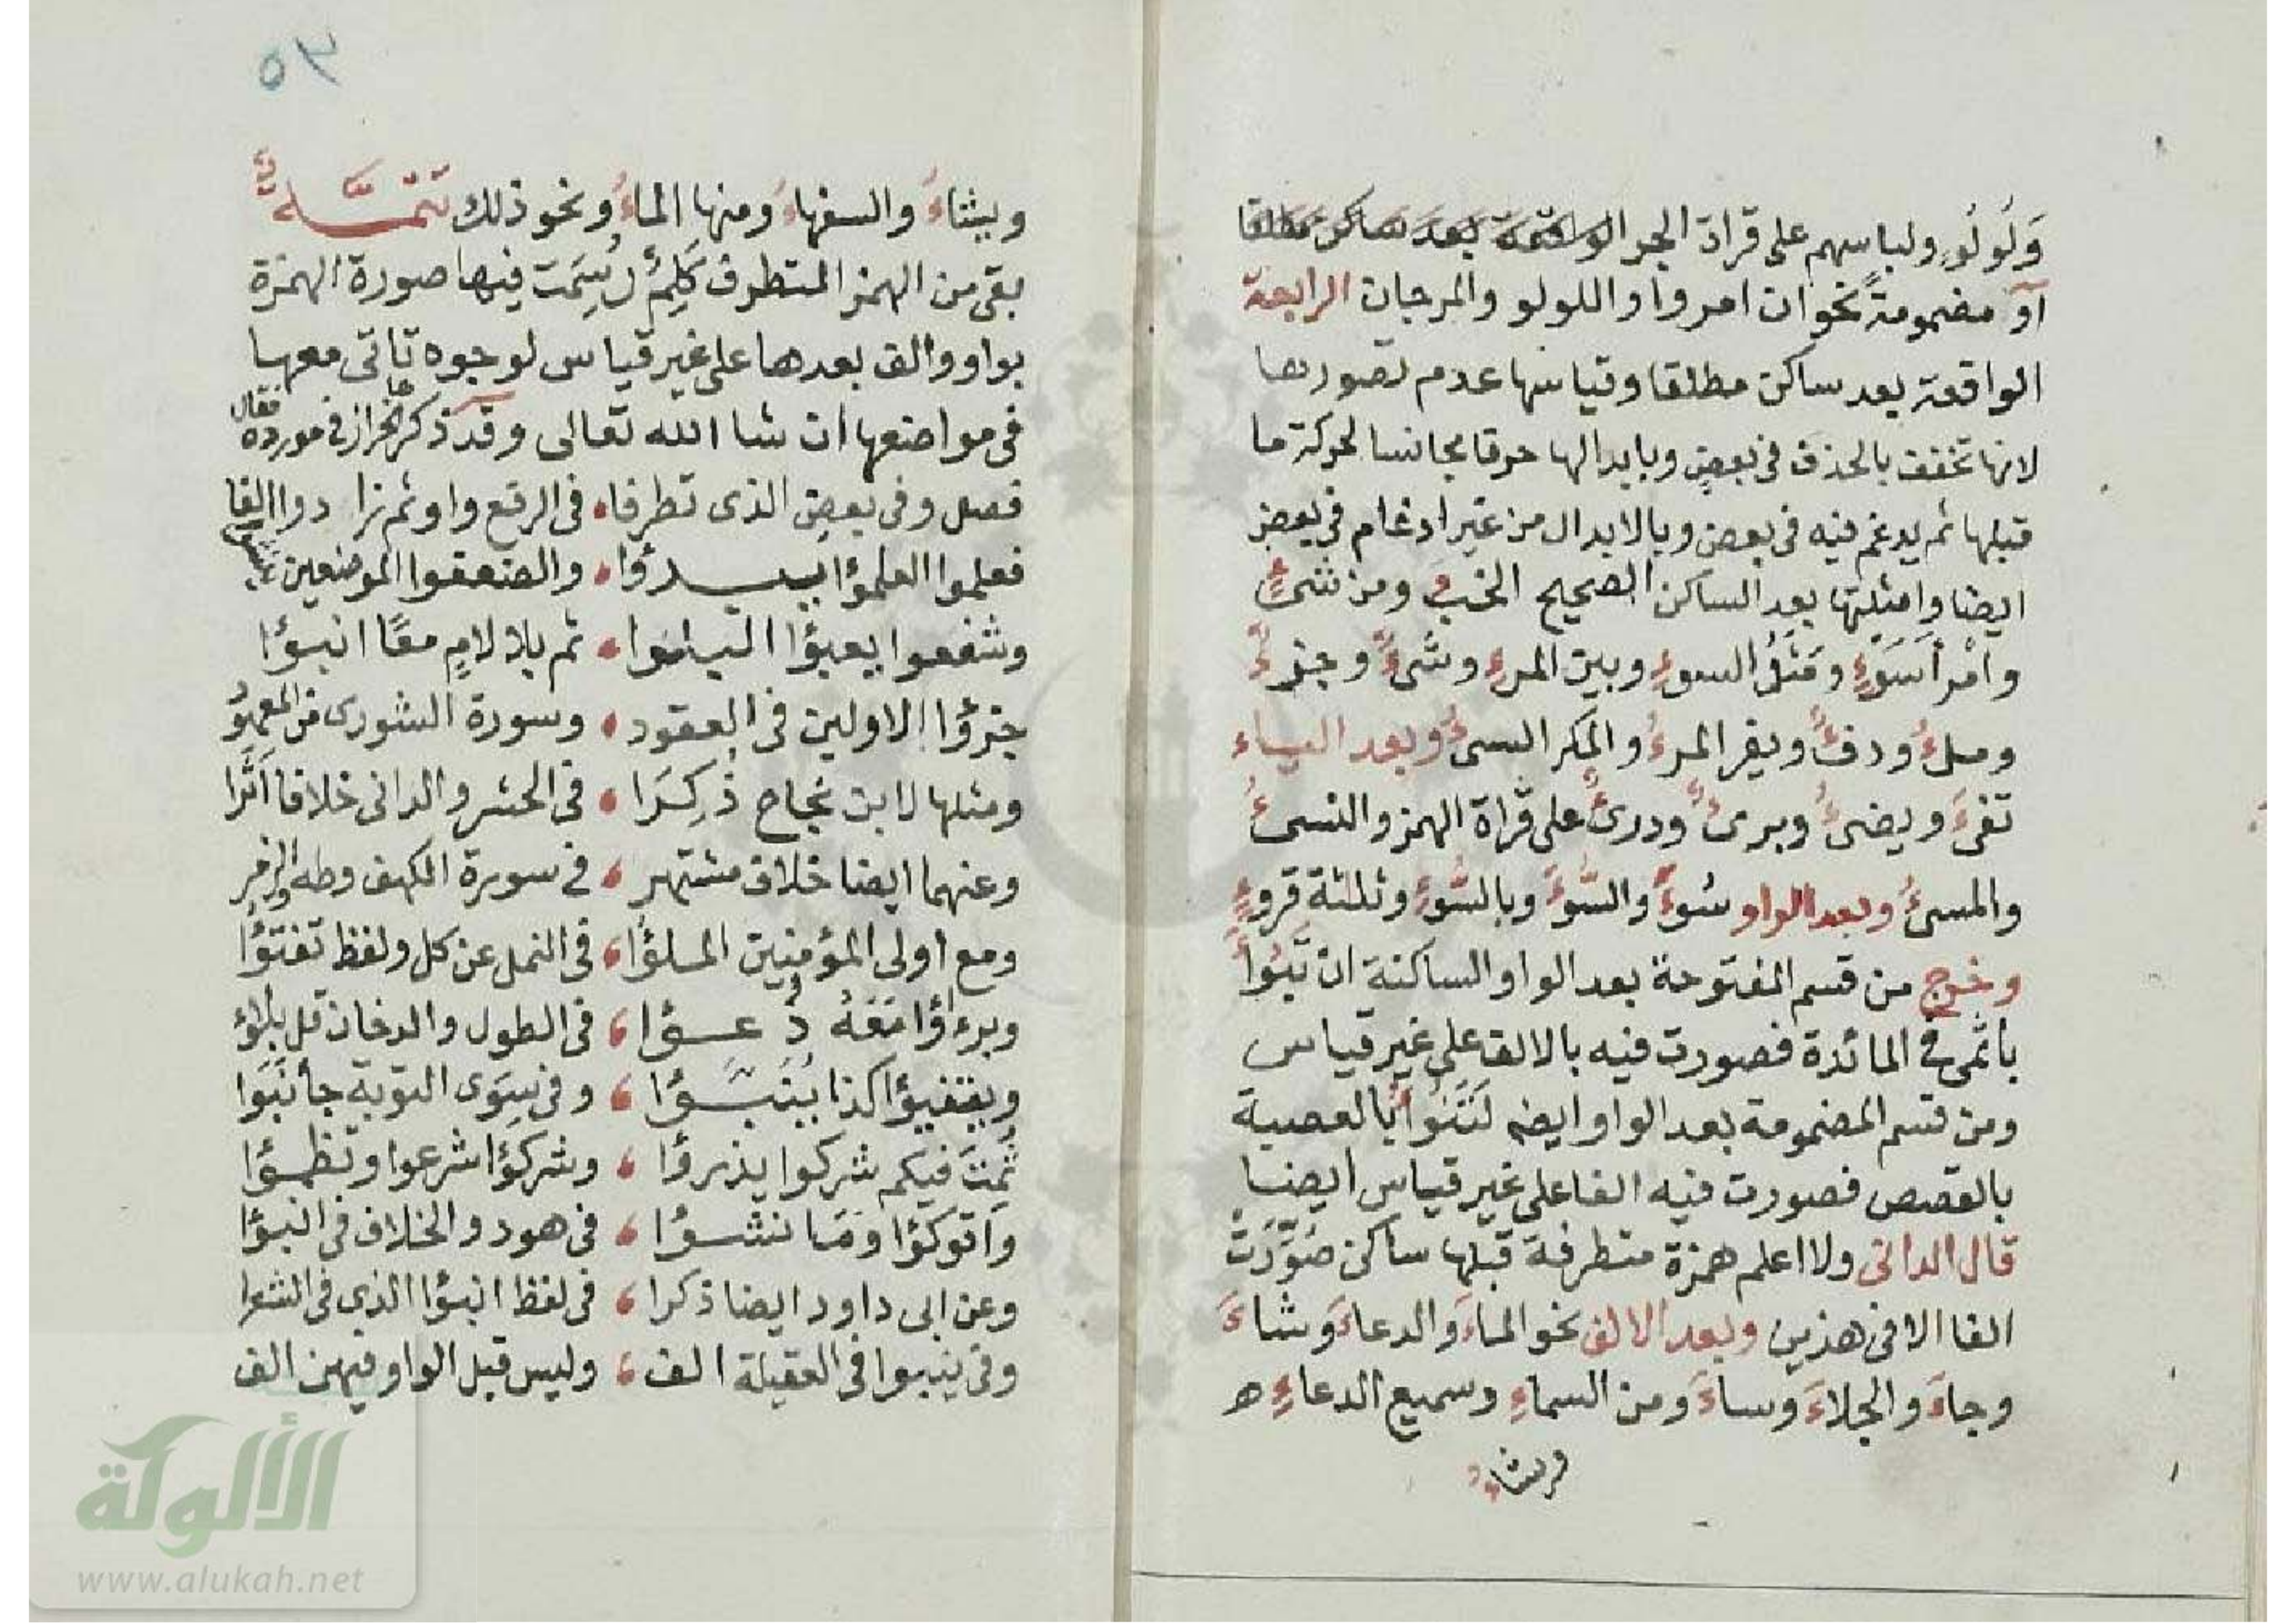 وَلُولُوٍ ولباسهم على قراة الجر الواقعة بعد ساكن مطلقا
أو مضمومةً نحو ان امروا واللولو والمرجان الرابعة
الواقعة بعد ساكن مطلقا وقياسها عدم تصورها
لانها تخفف بالحذف فى بعض وبابدالها حرفا مجانسا لحركة ما
قبلها ثم يدغم فيه فى بعض وبالابدال من غير ادغام فى بعض
ايضا وامثلتها بعد الساكن الصحيح الخبء ومن شىءٍ
وامرأ سَوْءٍ ومَثَلُ السوءِ وبين المرءِ وشىءٌ وجزءٌ
وملءُ ودفءٌ ويفر المرءُ والمكر السىءُ وبعد الياء
تفىءَ ويضىءُ وبرىءٌ ودرىءٌ على قراة الهمز والنسىءُ
والمسىءُ وبعد الواو سُوءَ والسُّوءَ وبالسُّوءِ وثلثة قروءٍ
وخرج من قسم المفتوحة بعد الواو الساكنة ان تَبُوأَ
باثمى فى المائدة فصورت فيه بالالف على غير قياس
ومن قسم المضمومة بعد الواو ايضا لَتَنُوأُ بالعصبة
بالقصص فصورت فيه الفا على غير قياس ايضا
قال الدانى ولا اعلم همزة متطرفة قبلها ساكن صُوِّرَتْ
الفا الا فى هذين وبعد الالف نحو الماءَ والدعاءَ وشاءَ
وجاءَ والجلاءَ وساءَ ومن السماءِ وسميع الدعاءِ ه
ويشاءُ
٥٣
ويشاءَ والسفهاءَ ومنها الماءُ ونحو ذلك تَتِمَّةٌ
بقى من الهمز المتطرف كَلِمٌ رُسِمَت فيها صورة الهمزة
بواو والف بعدها على غير قياس لوجوه تاتى معها
فى مواضعها ان شا الله تعالى وقد ذكرها الخراز فى مورده فقال
فصل وفى بعض الذى تطرفا فى الرفع واو ثم زادوا الفا
فعلموا العلمؤا يبدؤا والضعفوا الموضعين ينشؤا
وشفعوا يعبؤا البلؤا ثم بلا لامٍ معًا انبؤا
جزؤا الاولين فى العقود وسورة الشورى من المعهودُ
ومثلها لابن نجاح ذُكِرَا فى الحشر والدانى خلافا أَثَرا
وعنهما ايضا خلاف مشتهر فى سورة الكهف وطه والزمر
ومع اولى المؤمنين الملؤا فى النمل عن كل ولفظ تفتؤا
وبرءاؤا مَعَهُ دُعؤا فى الطول والدخان قل بلؤ
ويتفيؤا كذا يُنَبَّؤا وفى سِوَى التوبة جا نَبَؤا
ثُمَّتَ فيكم شركوا يدرؤا وشركؤا شرعوا وتظمؤا
واتوكؤا وَمَا نشؤا فى هود والخلاف فى انبؤا
وعن ابى داود ايضا ذكرا فى لفظ انبؤا الذى فى الشعرا
وفى ينبوا فى العقيلة الف وليس قبل الواو فيهن الف
الألوكة
www.alukah.net